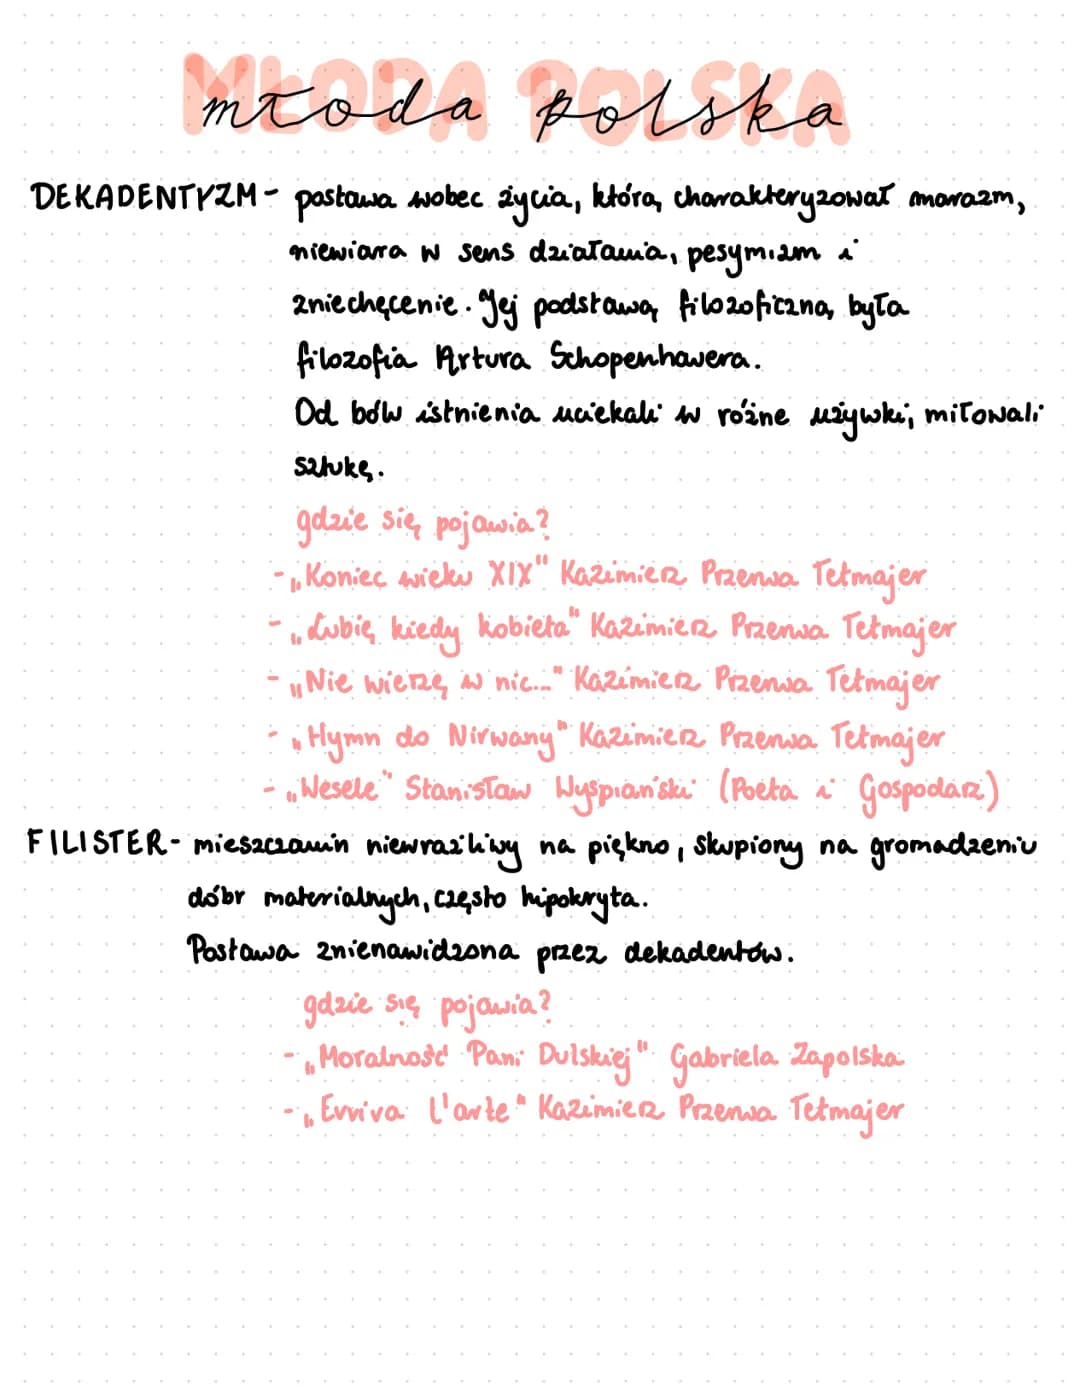 MŁODA POLSKA
młoda polska
DEKADENTYZM - postawa wobec życia, którą charakteryzował marazm,
niewiara w sens działania, pesymizm i
zniechęcenie. Jej podstawą filozoficzną była
filozofia Artura Schopenhauera.
Od bólu istnienia uciekali w różne używki, miłowali
sztukę.
gdzie się pojawia?
- „Koniec wieku XIX" Kazimierz Przerwa Tetmajer
- „Lubię kiedy kobieta" Kazimierz Przerwa Tetmajer
- „Nie wierzę w nic..." Kazimierz Przerwa Tetmajer
- „Hymn do Nirwany" Kazimierz Przerwa Tetmajer
- „Wesele" Stanisław Wyspiański (Poeta i Gospodarz)
FILISTER - mieszczanin niewrażliwy na piękno, skupiony na gromadzeniu
dóbr materialnych, często hipokryta.
Postawa znienawidzona przez dekadentów.
gdzie się pojawia?
- „Moralność Pani Dulskiej" Gabriela Zapolska
- „Evviva l'arte" Kazimierz Przerwa Tetmajer